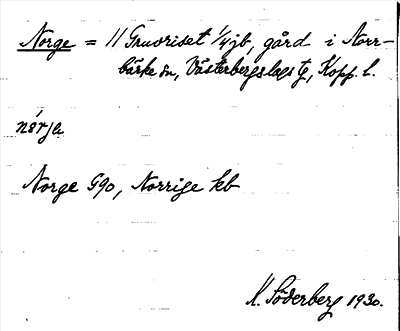 Norge = 11 Gruvriset 1/4 jb, gård i Norr-
bärke sn, Västerbergslags tg, Kopp. l.
nórja
Norge G90, Norrige kb
K. Söderberg 1930.